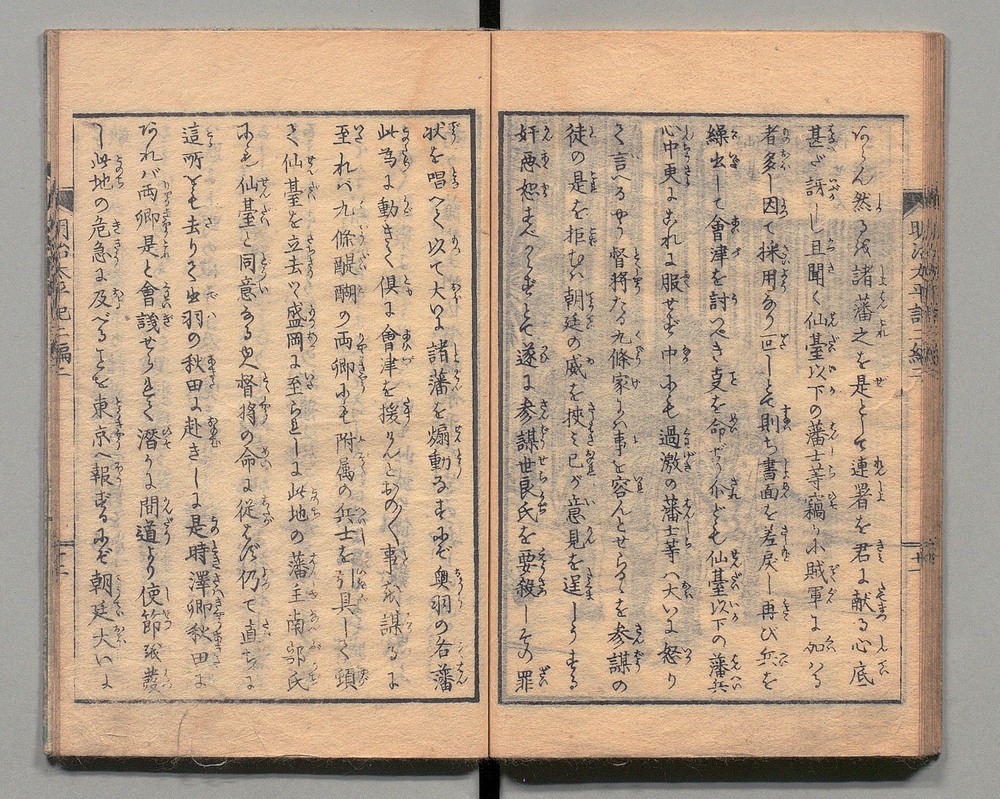 然るを諸藩之を是として連署を君に献る心底
甚だ訝し且聞く仙臺以下の藩士等竊に小賊軍に加はる
者多し因て採用あり回しとて則ち書面を差戻し再び兵を
繰出して會津を討つべき支を命ずり介ども仙臺以下の藩兵
心中更にこれに服せず中にも過激の藩士等ハ大いに怒り
て言へるやう督將たる九條家より事を容んとせらるゝを参謀の
徒の是を拒むハ朝廷の威を挾ミ己が意見を逞しうする
奸悪恕すべからずとて遂に参謀世良氏を要殺しその罪
状を唱へて以て大いに諸藩を煽動するにぞ奥羽の各藩
此為に動きて俱に會津を援けんとおのく事を謀るに
至れバ九條醍醐の両卿にも附属の兵士を引具して頭
て仙臺を立去つ盛岡に至られしに此地の藩主南部氏
にも仙臺と同意なる由督將の命に従はず仍て直ちに
這所をも去りて出羽の秋田に赴きしに是時澤卿秋田に
なれバ両卿是と會議せられて潛かに間道より使節を發
し此地の危急に及べることを東京へ報ずるにぞ朝廷大いに
明治太平記二編二
十二